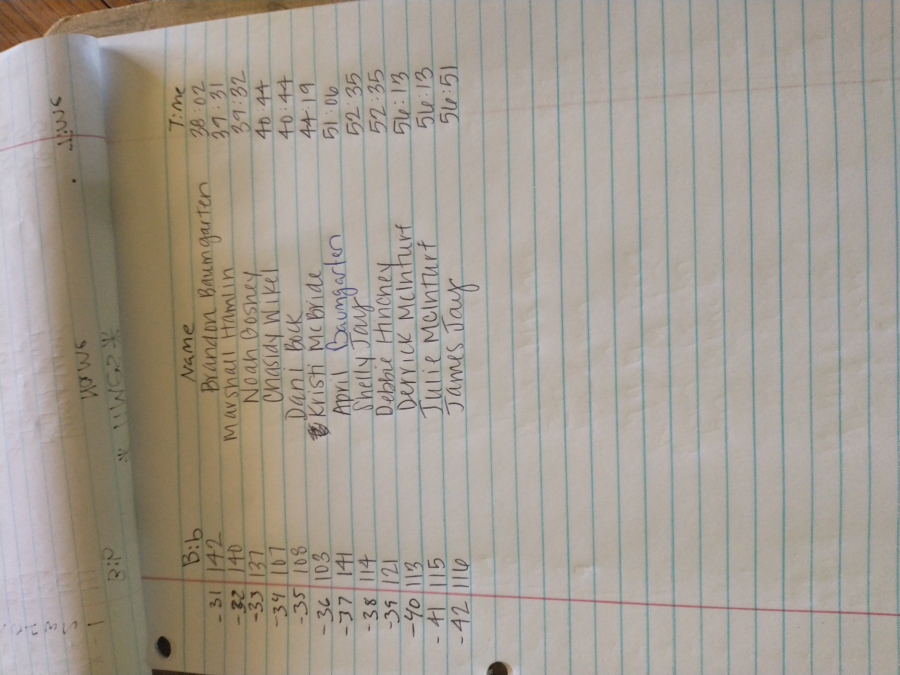 Bib Name Time
-31 142 Brandon Baumgarten 38:02
-32 140 Marshall Hamlin 39:31
-33 137 Noah Goshey 39:32
-34 107 Chasidy Nikel 40:44
-35 108 Dani Bock 40:44
-36 103 Kristi McBride 44:19
-37 141 April Baumgarten 51:06
-38 114 Shelly Jay 52:35
-39 121 Debbie Hinchey 52:35
-40 113 Derrick McInturf 56:13
-41 115 Julie McInturf 56:13
-42 116 James Jay 56:51